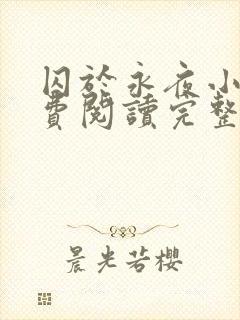 囚於永夜小
費閱讀完整
晨光若櫻